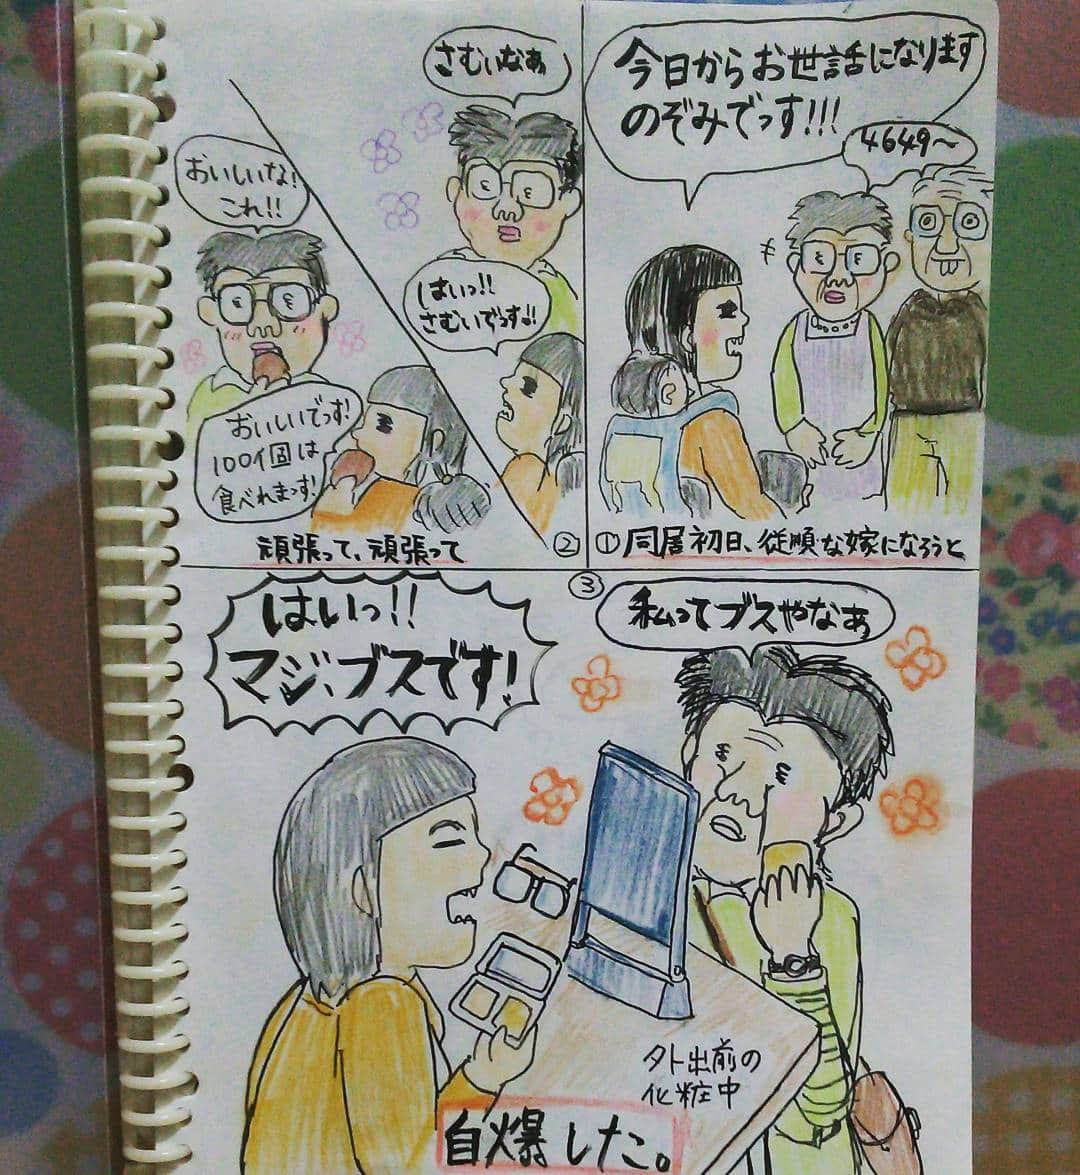 今日からお世話になります
のぞみでっす!!!
4649〜
①同居初日、従順な嫁になろうと
さむいなぁ
はいっ!!
さむいでっす!!
おいしいな!
これ!!
おいしいでっす!
100個は
食べれまっす!
頑張って、頑張って
②
③
私ってブスやなぁ
はいっ!!
マジ、ブスです!
外出前の
化粧中
自爆した。